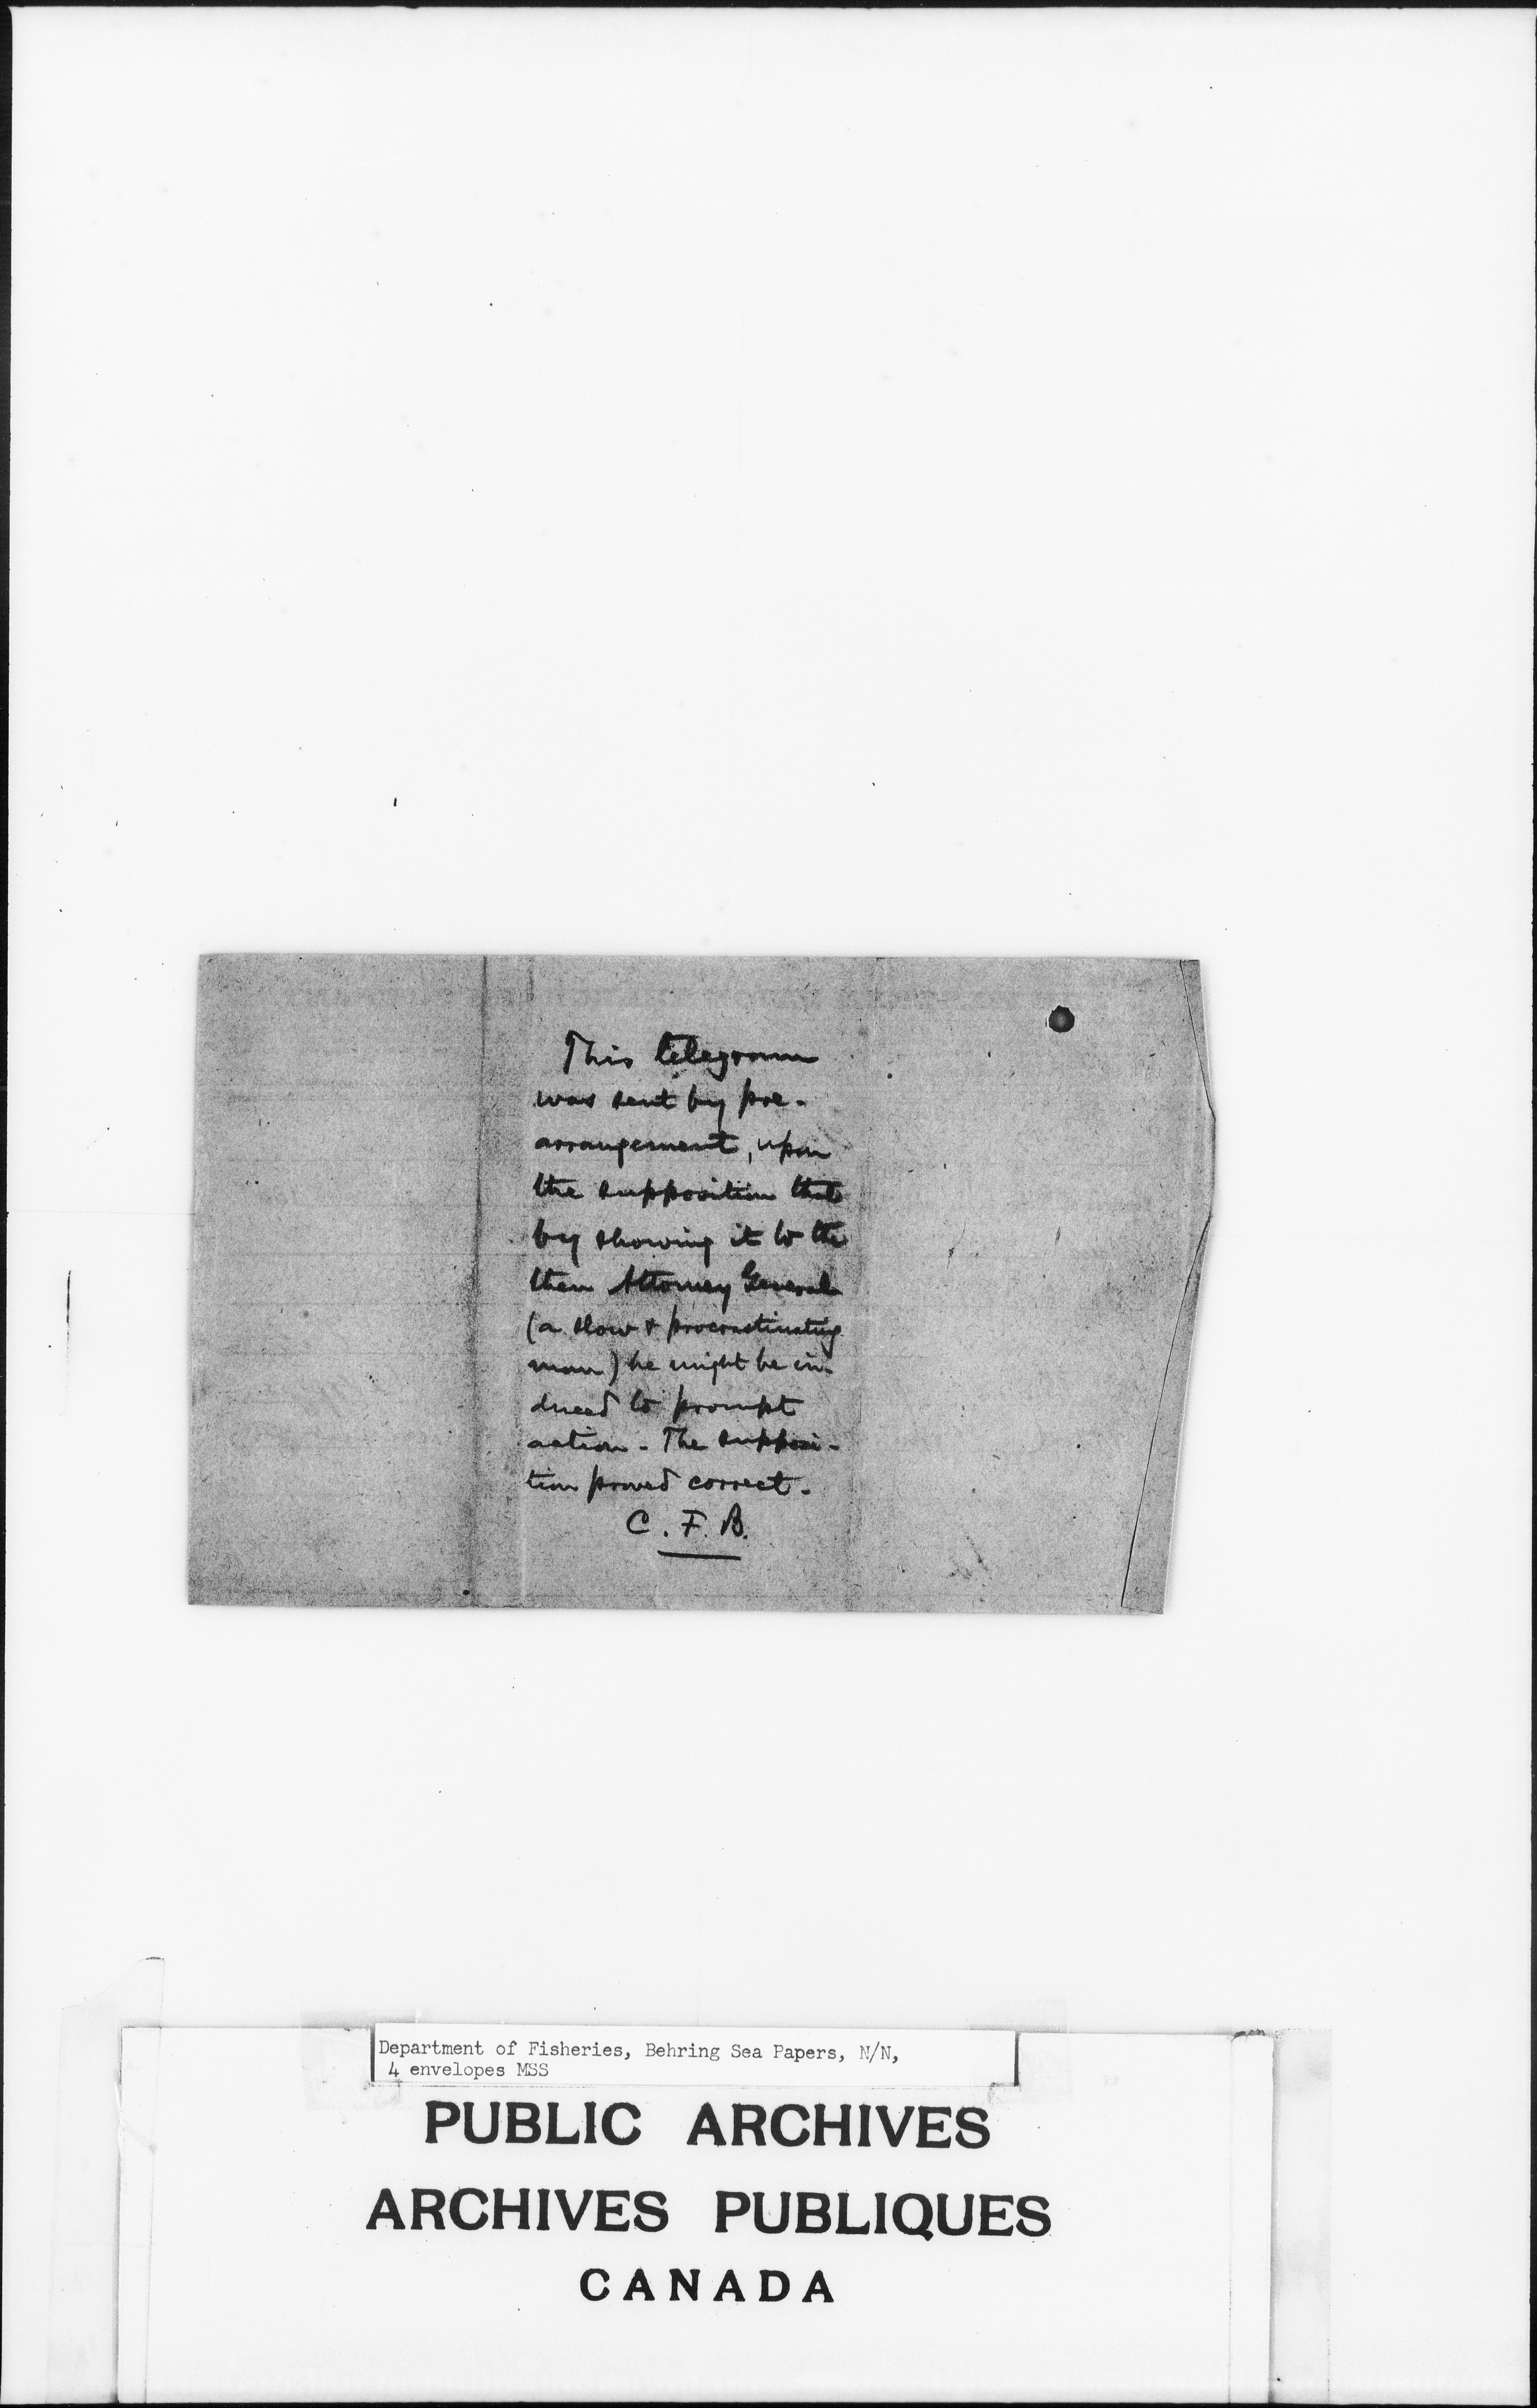 This telegram
was sent by pre-
arrangement, upon
the supposition that
by showing it to the
then Attorney General
(a slow & procrastinating
man) he might be in-
duced to prompt
action - The supposi-
tion proved correct.
C. F. B.
Department of Fisheries, Behring Sea Papers, N/N,
4 envelopes MSS
PUBLIC ARCHIVES
ARCHIVES PUBLIQUES
CANADA